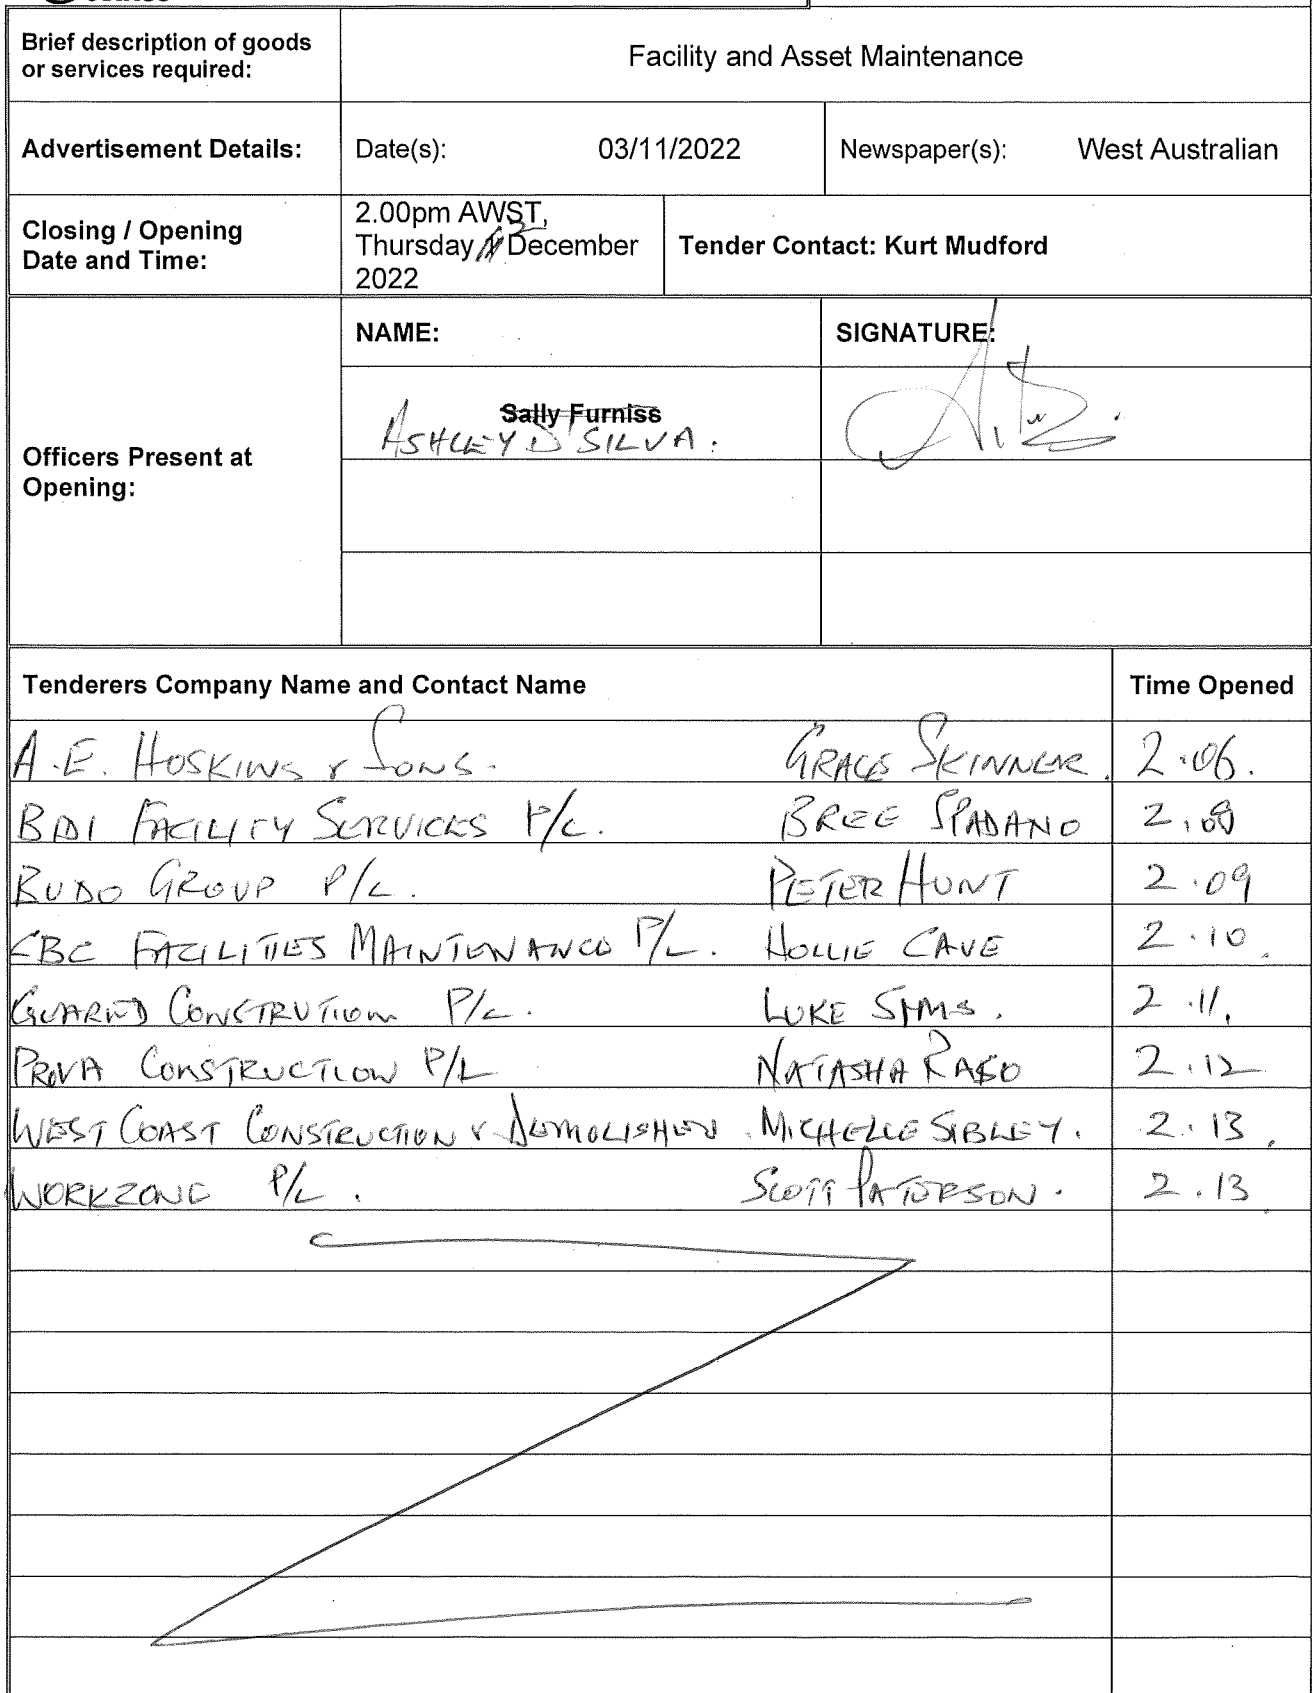 Brief description of goods
or services required:
Facility and Asset Maintenance
Advertisement Details:
Date(s): 03/11/2022
Newspaper(s): West Australian
Closing / Opening
Date and Time:
2.00pm AWST,
Thursday December
2022
Tender Contact: Kurt Mudford
Officers Present at
Opening:
NAME:
SIGNATURE:
Sally Furniss
ASHLEY D'SILVA.
Tenderers Company Name and Contact Name
Time Opened
A.E. HOSKINS & SONS. GRACE SKINNER. 2.06.
BDI FACILITY SERVICES P/L. BREE SPADANO 2.08
BUDO GROUP P/L. PETER HUNT 2.09
CBC FACILITIES MAINTENANCE P/L. HOLLIE CAVE 2.10.
CONSTRUTION P/L. LUKE SIMS. 2.11.
CONSTRUCTION P/L NATASHA RASO 2.12
WEST COAST CONSTRUCTION & MICHELLE SIBLEY. 2.13.
WORKZONE P/L. SCOTT PATERSON. 2.13.